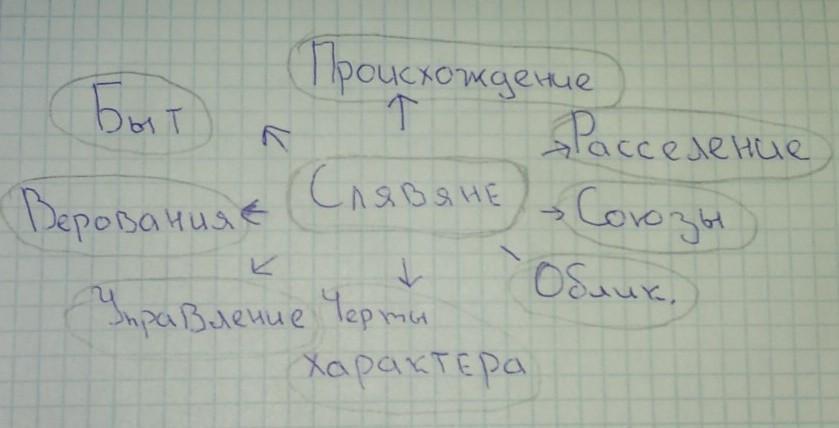 Происхождение
Быт
Расселение
Слявяне
Верования
Союзы
Облик.
Управление
Черты
характера